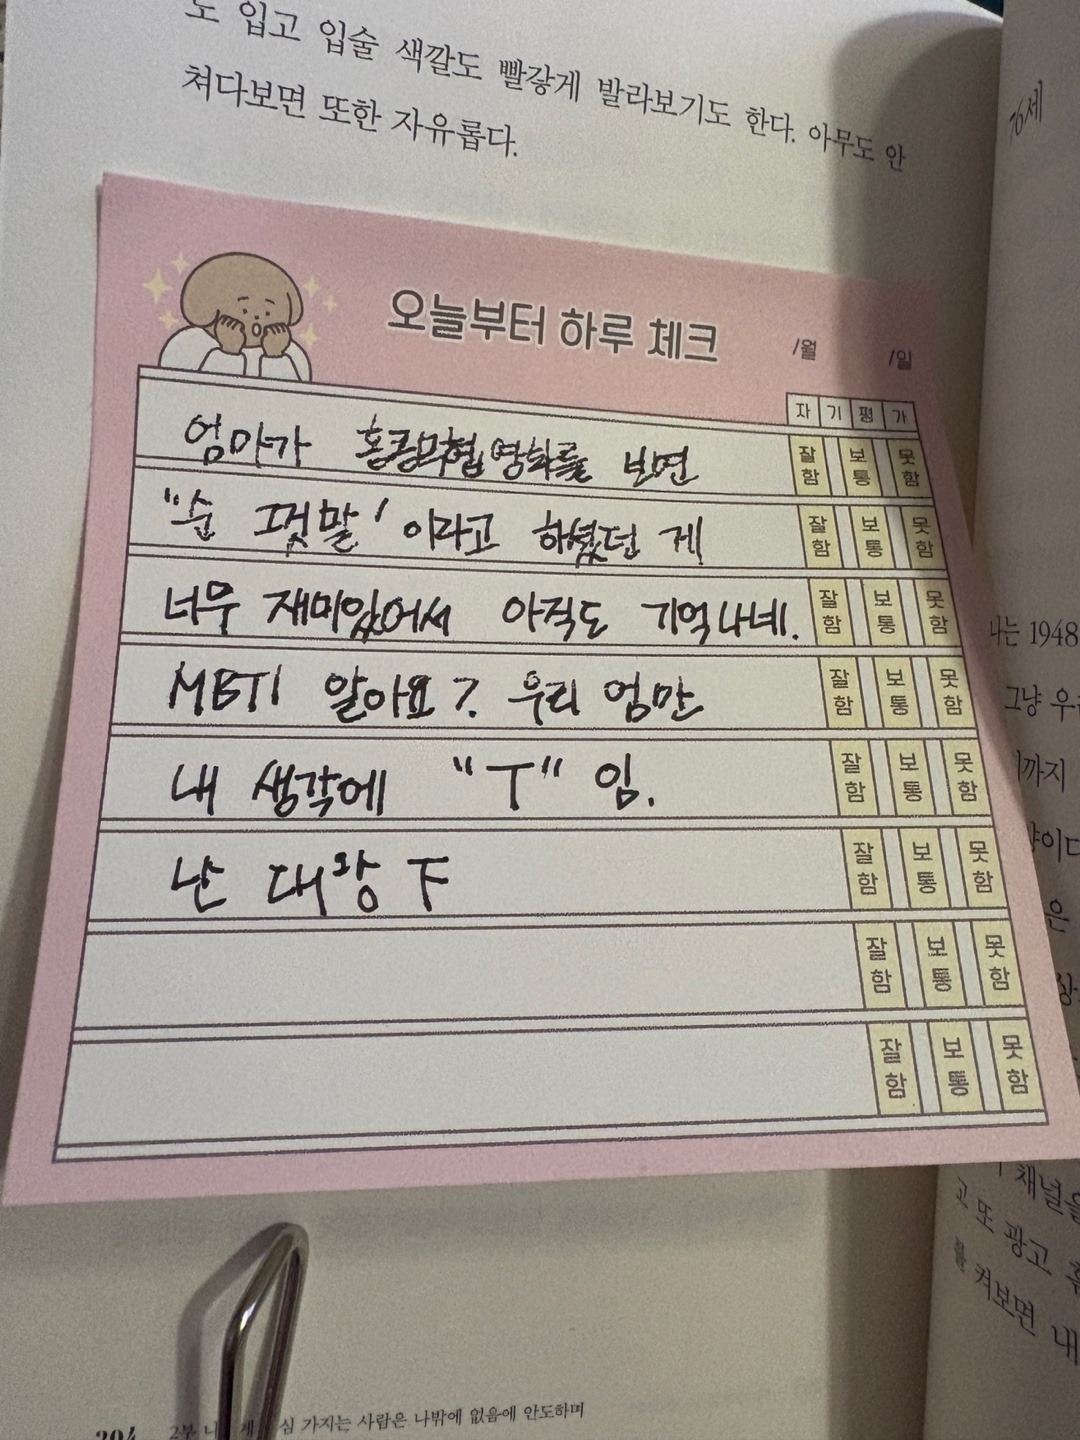 도 입고 입술 색깔도 빨갛게 발라보기도 한다. 아무도 안
쳐다보면 또한 자유롭다.
76세
오늘부터 하루 체크 /월 /일
자 기 평 가
엄마가 홍콩무협영화를 보면 잘함 보통 못함
"순 그짓말' 이라고 하셨던 게 잘함 보통 못함
너무 재미있어서 아직도 기억나네. 잘함 보통 못함
MBTI 알아요? 우리 엄만 잘함 보통 못함
내 생각에 "T" 임. 잘함 보통 못함
난 대왕 F 잘함 보통 못함
잘함 보통 못함
잘함 보통 못함
나는 1948
그냥
까지
이다
은
채널을
고 또 광고
켜보면 내
204
2부 가지는 사람은 나밖에 없음에 안도하며